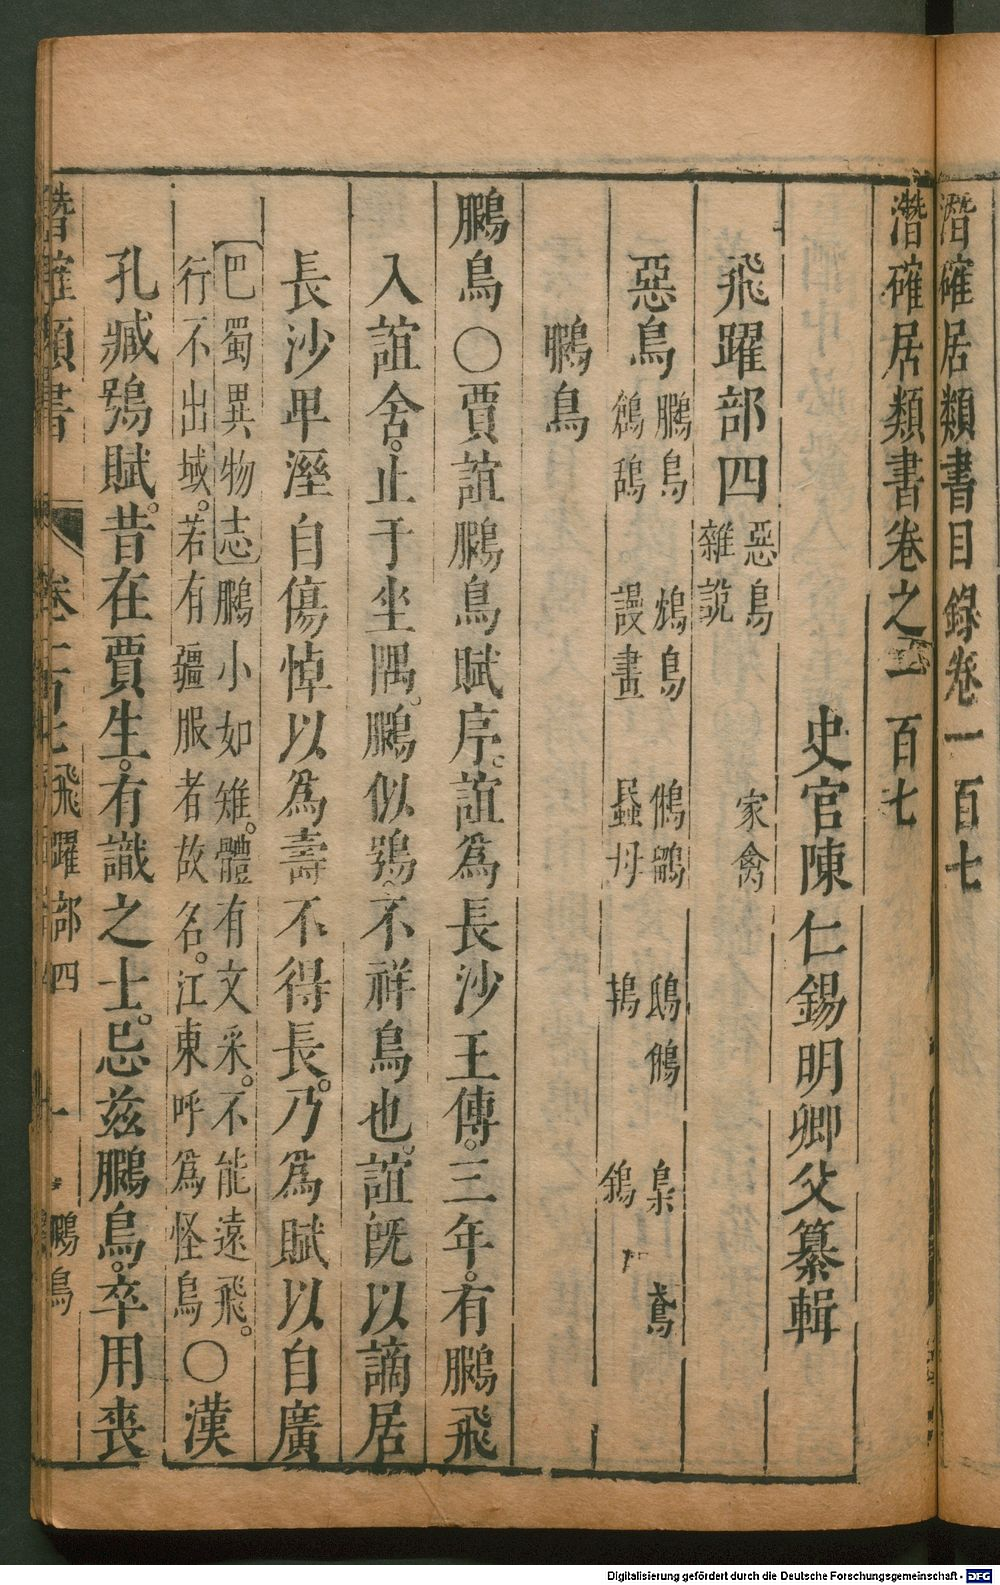 潛確居類書目錄卷一百七
潛確居類書卷之一百七
史官陳仁錫明卿父纂輯
飛躍部四 惡鳥 家禽
雜說
惡鳥 鵩鳥 鴆鳥 鵂鶹 鴟鵂 梟 鳶
鶬鴰 謾畫 蟁母 鴇 鴒
鵩鳥
鵩鳥〇賈誼鵩鳥賦序。誼爲長沙王傅。三年。有鵩飛
入誼舍。止于坐隅。鵩似鴞。不祥鳥也。誼旣以謫居
長沙卑溼自傷悼以爲壽不得長。乃爲賦以自廣
巴蜀異物志鵩小如雉。體有文采。不能遠飛。
行不出域。若有疆服者故名。江東呼爲怪鳥〇漢
孔臧鴞賦。昔在賈生。有識之士。忌兹鵩鳥。卒用喪
潛確類書 卷一百七飛躍部四 一 鵩鳥
Digitalisierung gefördert durch die Deutsche Forschungsgemeinschaft - DFG